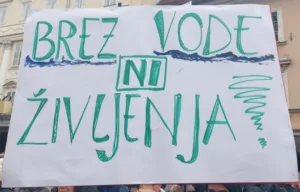 BREZ VODE
NI
ŽIVLJENJA!